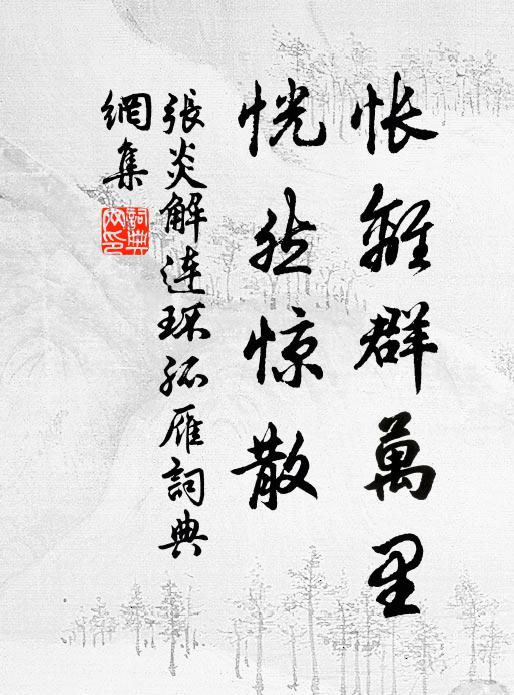 悵離群萬里
恍然惊散
張炎解連环孤雁詞典
網集
詞典网印